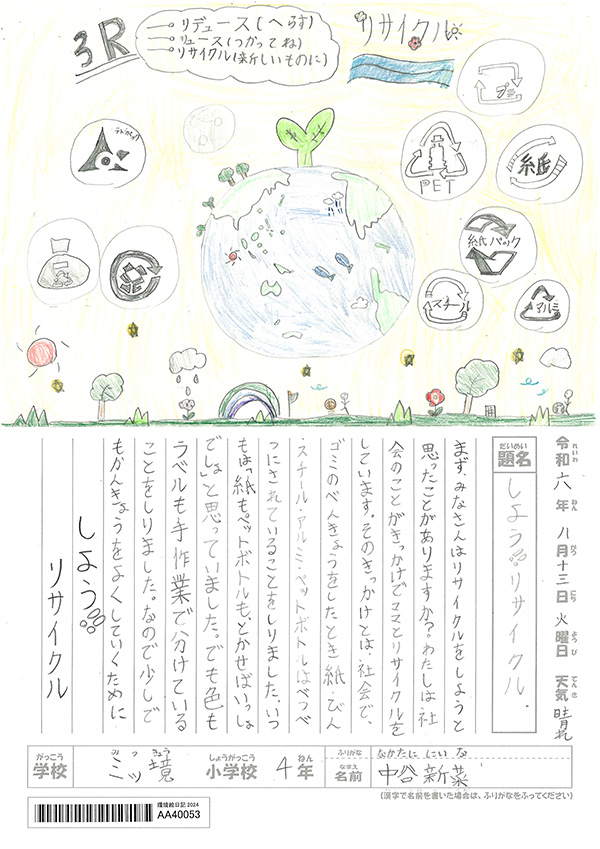 3R
リデュース(へらす)
リュース(つかってね)
リサイクル(新しいものに)
リサイクル
プラ
PET
紙
紙パック
スチール
アルミ
令和六年八月十三日火曜日 天気晴れ
れいわ ねん がつ にち ようび てんき
だいめい
題名
しよう リサイクル.
まず、みなさんはリサイクルをしようと
思ったことがありますか?わたしは社
会のことがきっかけでママとリサイクルを
しています。そのきっかけとは、社会で、
ゴミのべんきょうをしたとき紙・びん
・スチール・アルミ・ペットボトルはべつべ
つにされていることをしりました。いつ
もは「紙もペットボトルも、とかせばいっしょ
でしょ」と思っていました。でも色も
ラベルも手作業で分けている
ことをしりました。なので少しで
もかんきょうをよくしていくために
しよう
リサイクル
がっこう
学校
みつ きょう
三ッ境
しょうがっこう
小学校
4年
ねん
ふりがな
なかたに にいな
なまえ
名前
中谷 新菜
(漢字で名前を書いた場合は、ふりがなをふってください)
環境絵日記 2024
AA40053